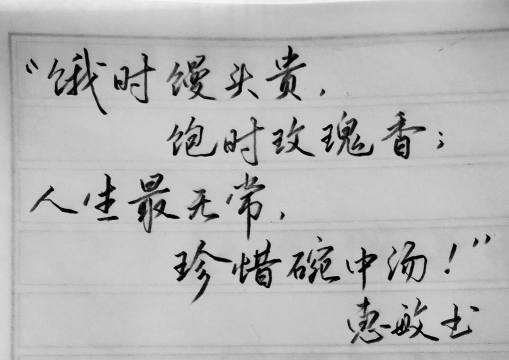 “饿时馒头贵，
饱时玫瑰香；
人生最无常，
珍惜碗中汤！”
惠敏书